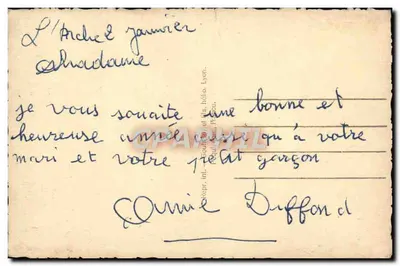 L'Arche 2 janvier
Madame
je vous souaite une bonne et
heureuse année ainsi qu'à votre
mari et votre petit garçon
Annie Duffond